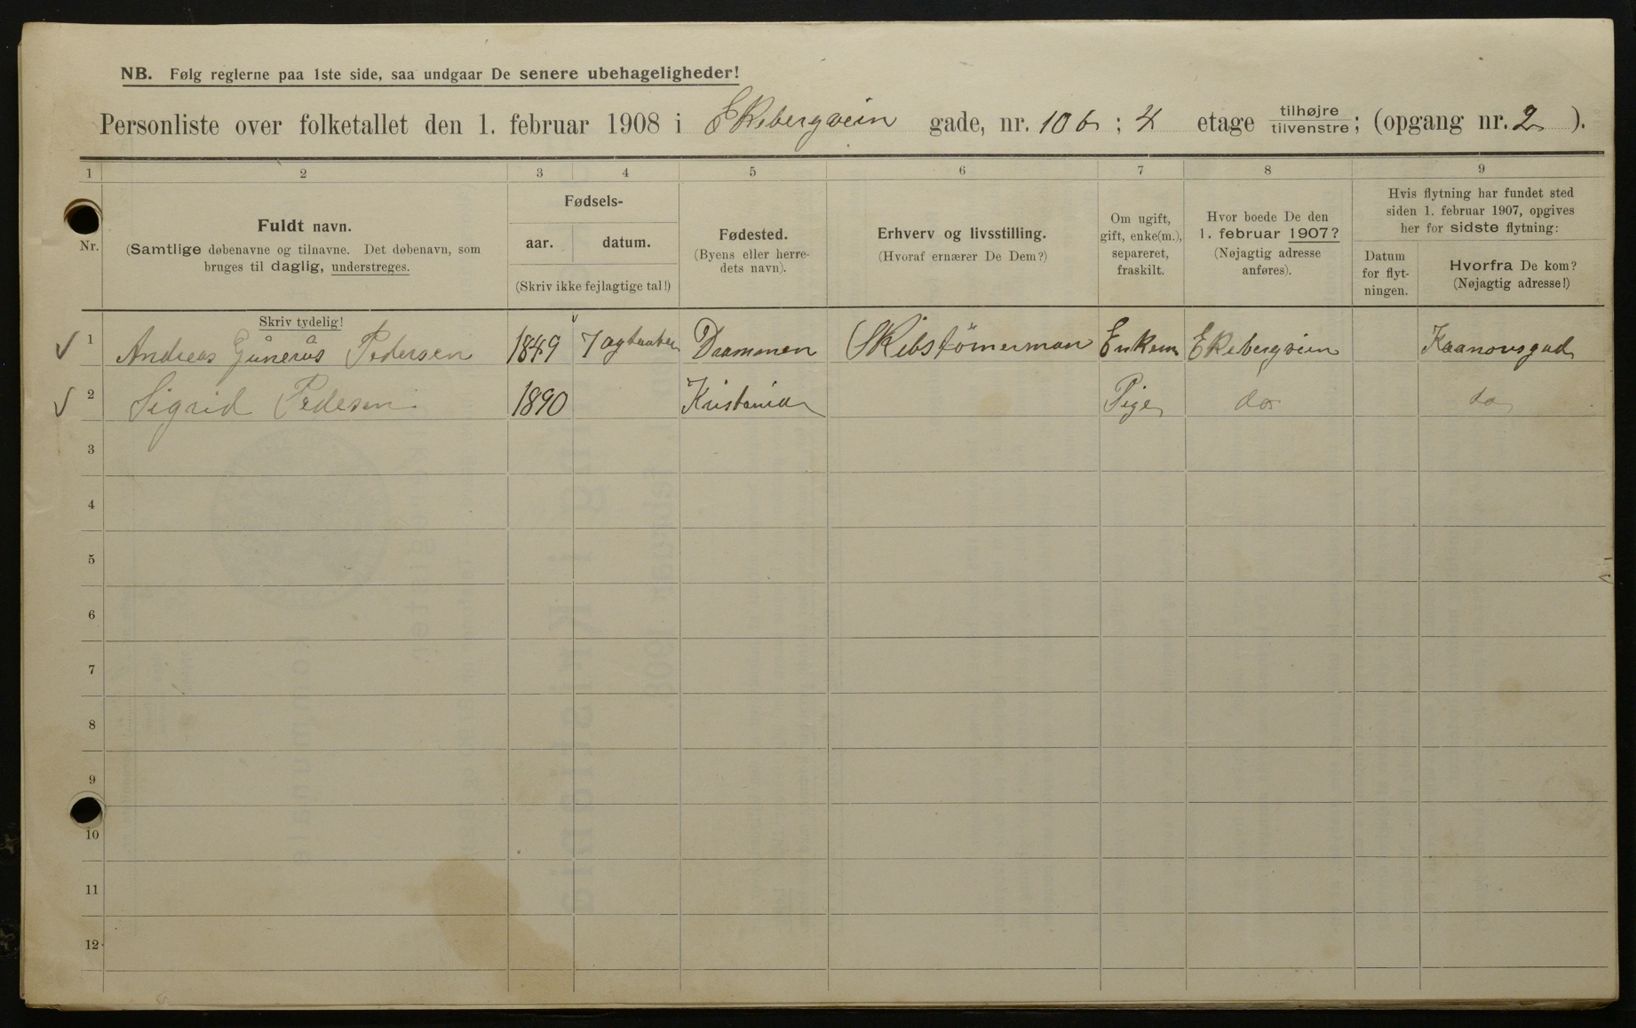 NB. Følg reglerne paa 1ste side, saa undgaar De senere ubehageligheder!
Personliste over folketallet den 1. februar 1908 i Ekebergveien gade, nr. 10 b ; 4 etage tilhøjre tilvenstre ; (opgang nr. 2 ).
1 2 3 4 5 6 7 8 9
Nr.
Fuldt navn.
(Samtlige døbenavne og tilnavne. Det døbenavn, som
bruges til daglig, understreges.
Fødsels-
aar. datum.
(Skriv ikke fejlagtige tal!)
Fødested.
(Byens eller herre-
dets navn).
Erhverv og livsstilling.
(Hvoraf ernærer De Dem?)
Om ugift,
gift, enke(m.),
separeret,
fraskilt.
Hvor boede De den
1. februar 1907?
(Nøjagtig adresse
anføres).
Hvis flytning har fundet sted
siden 1. februar 1907, opgives
her for sidste flytning:
Datum
for flyt-
ningen.
Hvorfra De kom?
(Nøjagtig adresse!)
Skriv tydelig!
1 Andreas Pedersen 1849 7 Drammen Skibstømerman Enkem Ekebergveien
2 Sigrid Pedesen 1890 Kristania Pige do do
3
4
5
6
7
8
9
10
11
12